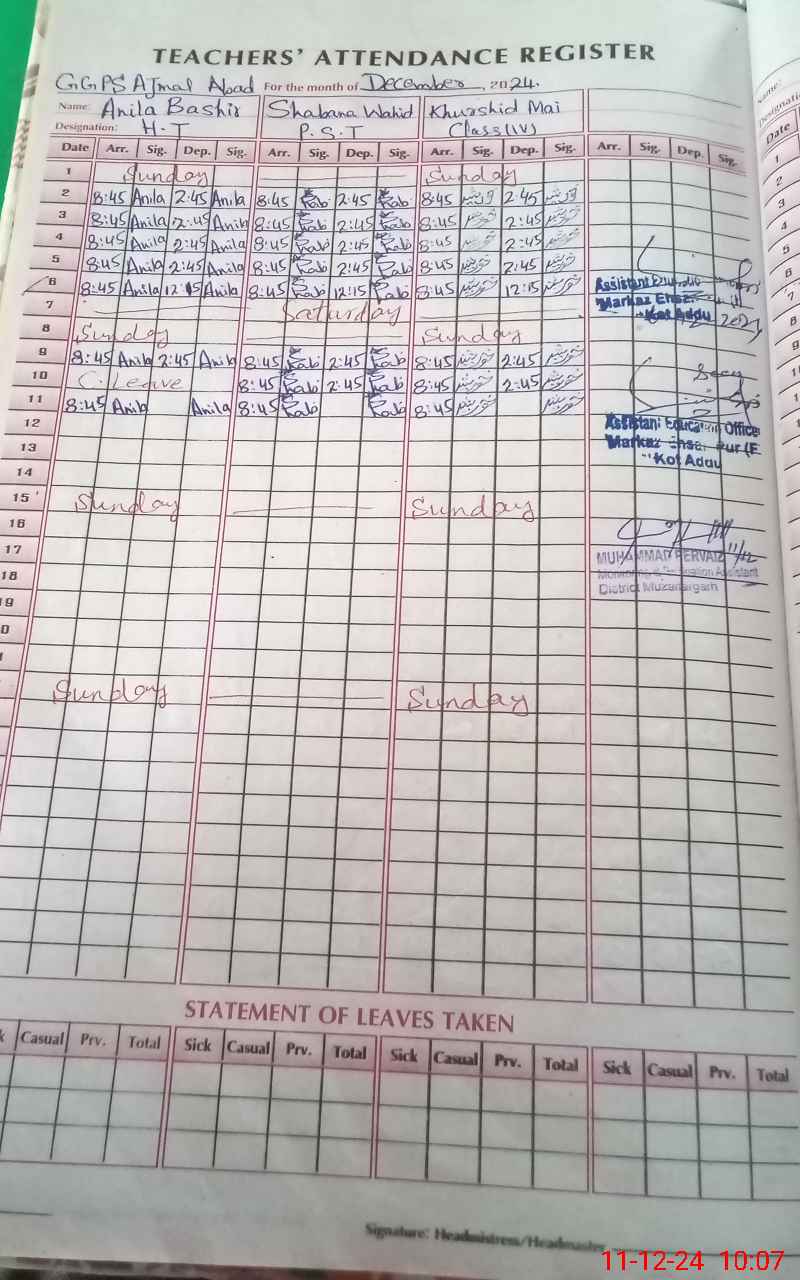 TEACHERS' ATTENDANCE REGISTER
GGPS Ajmal Abad For the month of December, 2024.
Name: Anila Bashir Shabana Wahid Khurshid Mai
Designation: H.T P.S.T Class(IV)
Date Arr. Sig. Dep. Sig. Arr. Sig. Dep. Sig. Arr. Sig. Dep. Sig. Arr. Sig. Dep. Sig.
1 Sunday Sunday
2 8:45 Anila 2:45 Anila 8:45 2:45 8:45 خورشید 2:45 خورشید
3 8:45 Anila 2:45 Anila 8:45 2:45 8:45 خورشید 2:45 خورشید
4 8:45 Anila 2:45 Anila 8:45 2:45 8:45 خورشید 2:45 خورشید
5 8:45 Anila 2:45 Anila 8:45 2:45 8:45 خورشید 2:45 خورشید
6 8:45 Anila 12:15 Anila 8:45 12:15 8:45 خورشید 12:15 خورشید
Assistant
Markaz
Kot Addu
7 Saturday
8 Sunday Sunday
9 8:45 Anila 2:45 Anila 8:45 2:45 8:45 خورشید 2:45 خورشید
10 C. Leave 8:45 2:45 8:45 خورشید 2:45 خورشید
11 8:45 Anila Anila 8:45 8:45 خورشید خورشید
12
Assistant Education Office
Markaz
Kot Addu
13
14
15 Sunday Sunday
16
17
MUHAMMAD PERVAIZ 11/12
Monitoring & Evaluation Assistant
District Muzaffargarh
18
9
0
Sunday Sunday
STATEMENT OF LEAVES TAKEN
Casual Prv. Total Sick Casual Prv. Total Sick Casual Prv. Total Sick Casual Prv. Total
Signature: Headmistress/Headmaster
11-12-24 10:07